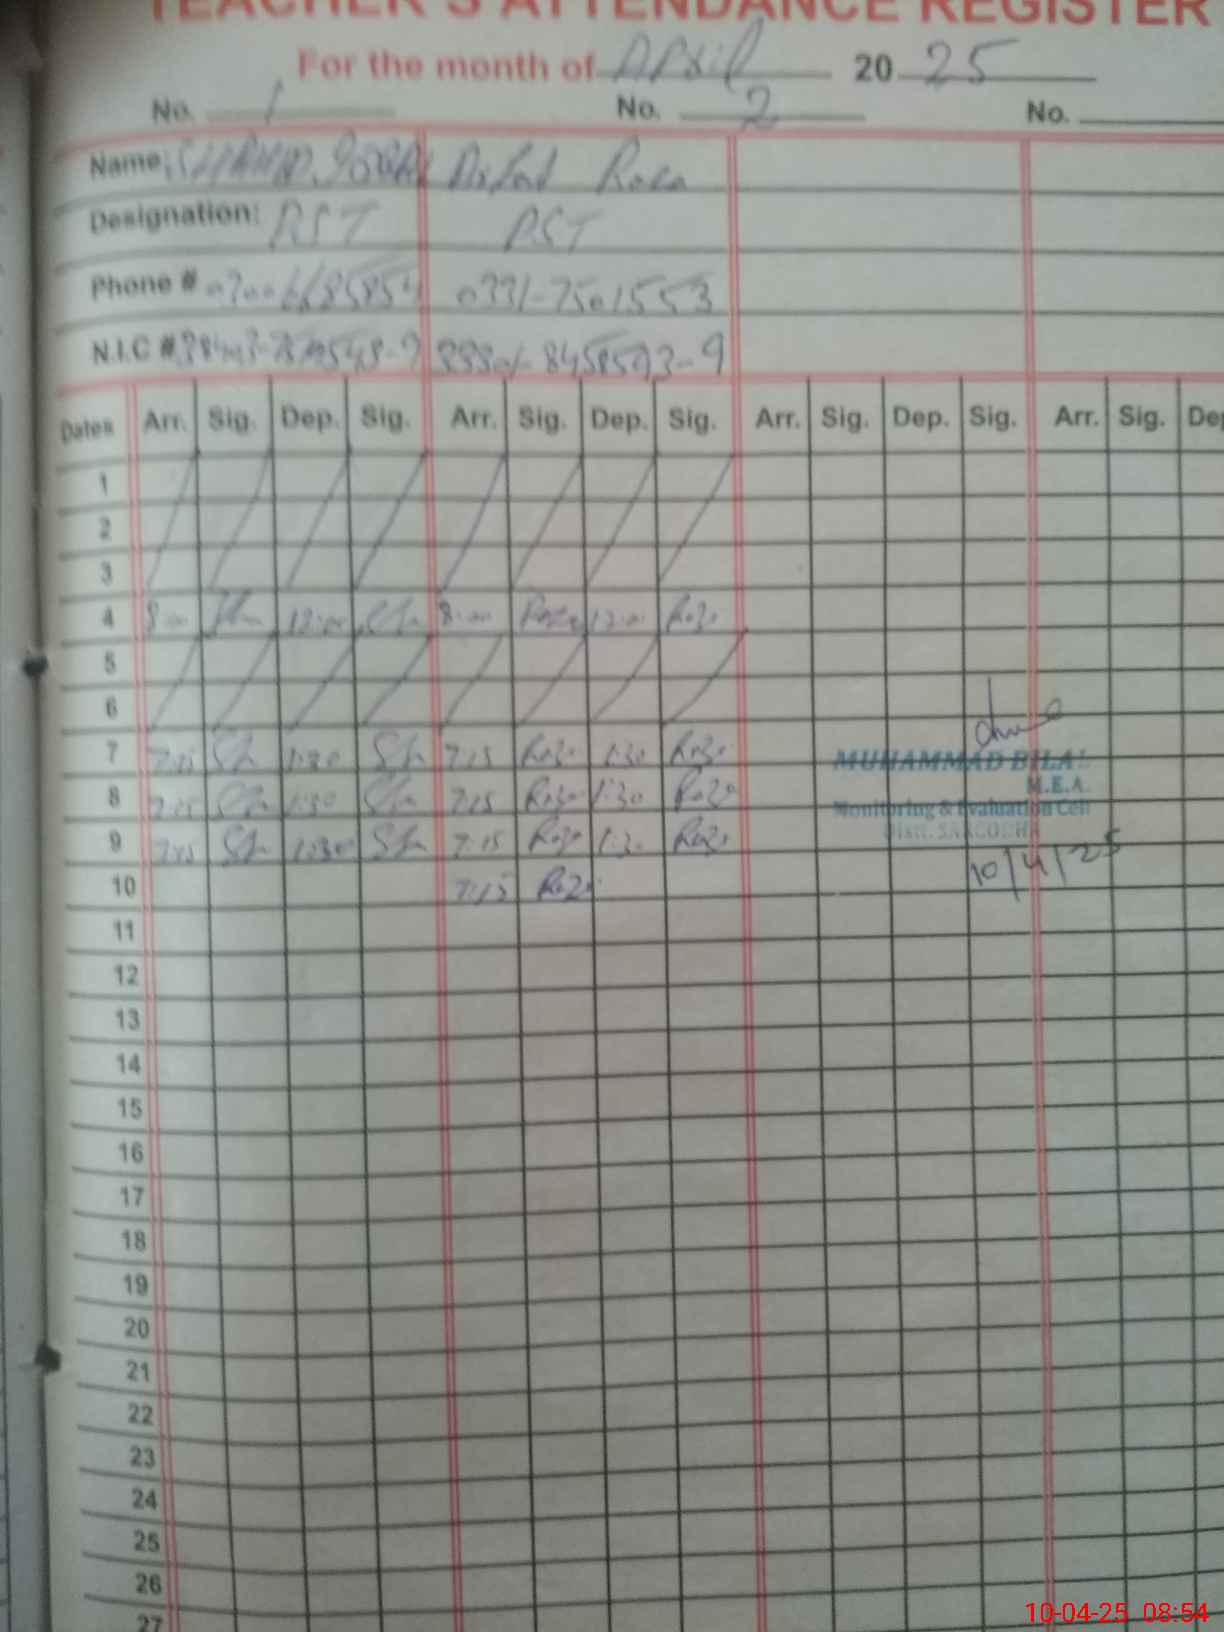 TEACHER'S ATTENDANCE REGISTER
For the month of April 20 25
No. 1 No. 2 No.
Name: Raza
Designation: PST PST
Phone # 0331-7501553
N.I.C #
Dates Arr. Sig. Dep. Sig. Arr. Sig. Dep. Sig. Arr. Sig. Dep. Sig. Arr. Sig. Dep
1
2
3
4 8:00 12:00 8:00 Raza 12:00 Raza
5
6
7 7:15 1:30 7:15 Raza 1:30 Raza
MUHAMMAD BILAL
8 7:15 1:30 7:15 Raza 1:30 Raza
M.E.A.
Monitoring & Evaluation Cell
Distt. SARGODHA
9 7:15 1:30 7:15 Raza 1:30 Raza
10 7:15 Raza 10/4/25
11
12
13
14
15
16
17
18
19
20
21
22
23
24
25
26
27
10-04-25 08:54